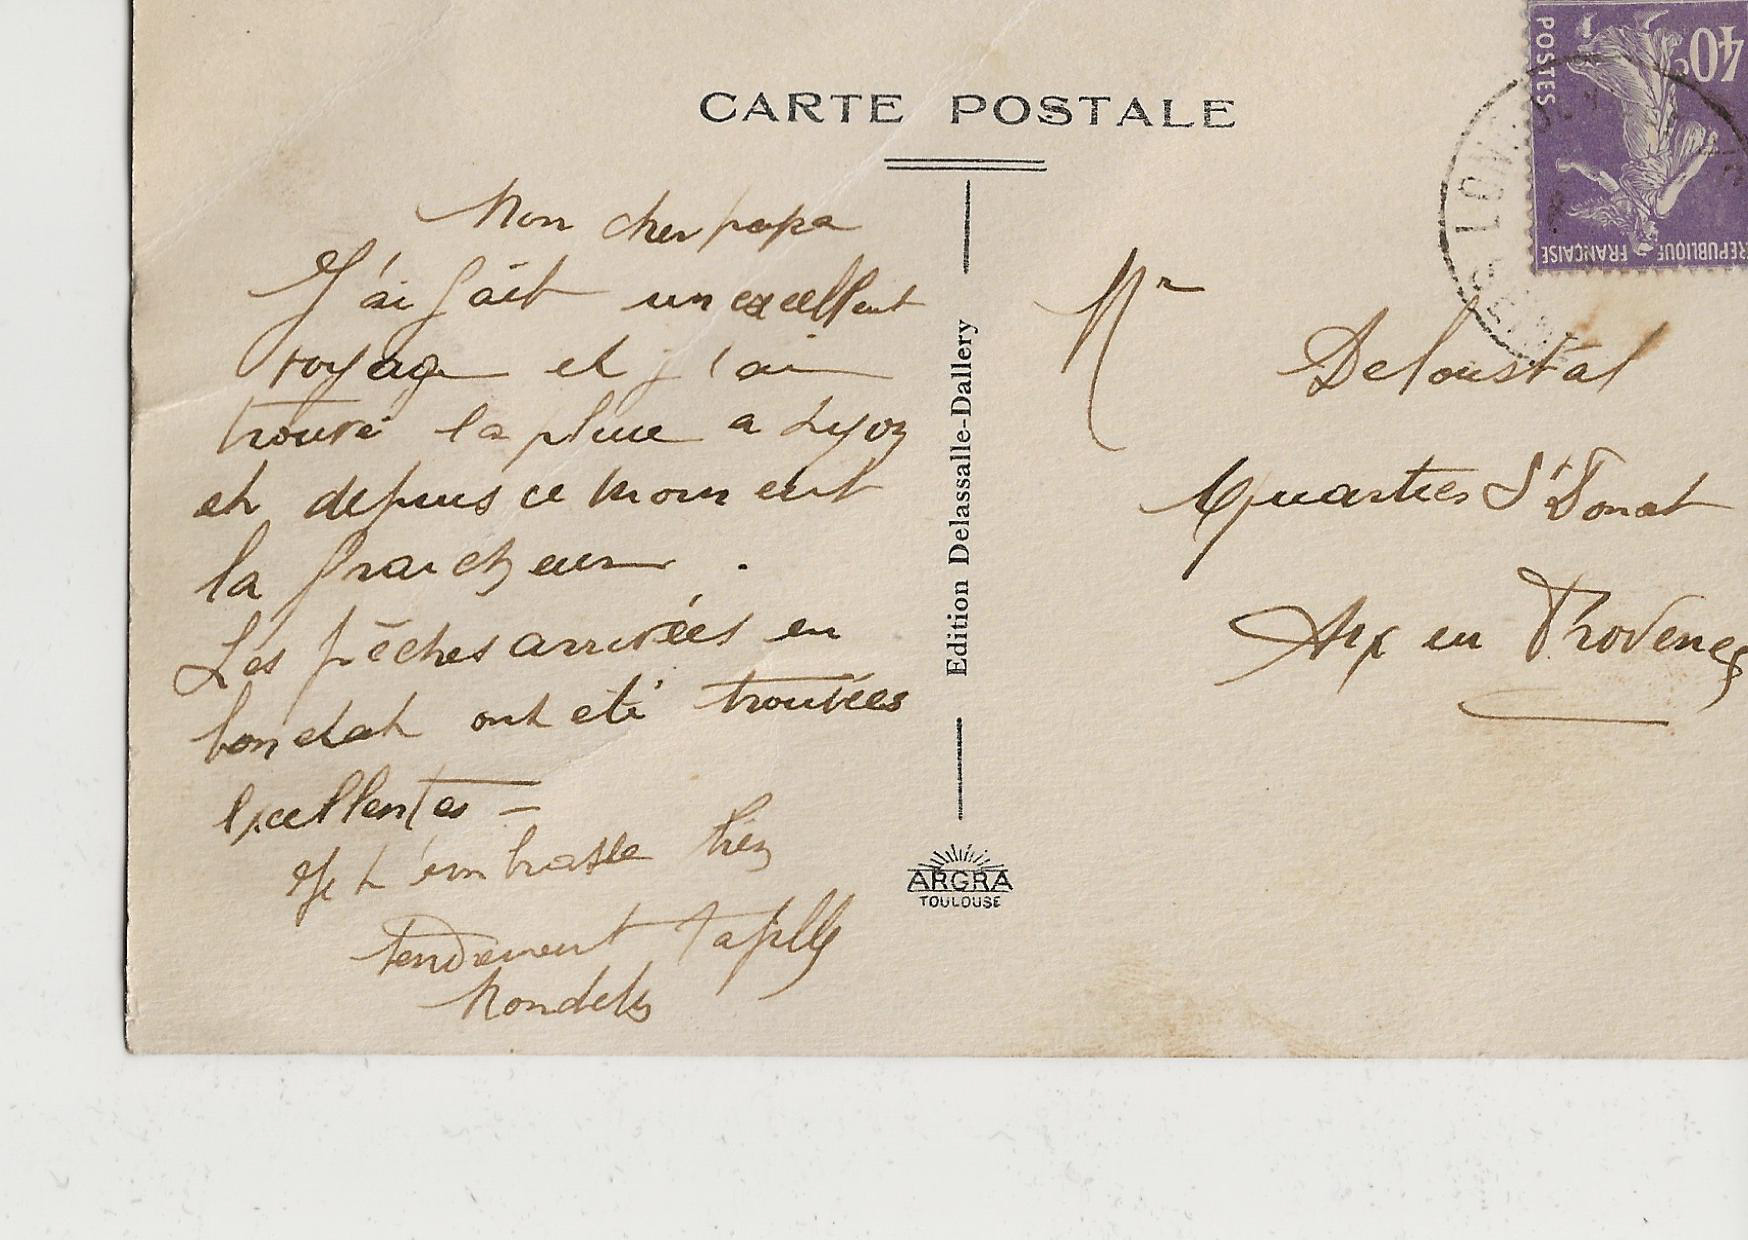 CARTE POSTALE
Mon cher papa
J'ai fait un excellent
voyage et j'ai
trouvé la pluie a Lyon
et depuis ce moment
la fraicheur .
Les pêches arrivées en
bon état ont été trouvées
excellentes –
Je t'embrasse bien
tendrement ta fille
Edition Delassalle-Dallery
ARGRA
TOULOUSE
POSTES
40c
REPUBLIQUE FRANÇAISE
Mr
Deloustal
Quartier St Donat
Aix en Provence